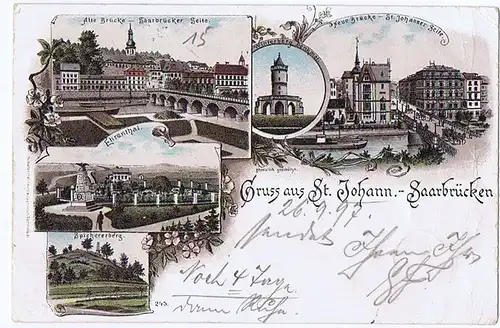 Alte Brücke - Saarbrücker Seite.
15
Neue Brücke - St. Johanner Seite.
Ehrenthal.
Gruss aus St. Johann.-Saarbrücken
26.9.97.
sendet
Spichererberg.
Noch 4 Tage
dann Ruhe.
243.